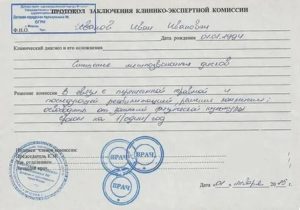 ПРОТОКОЛ ЗАКЛЮЧЕНИЯ КЛИНИКО-ЭКСПЕРТНОЙ КОМИССИИ
Ф.И.О. Иван Иванович
Дата рождения 01.01.1994
Клинический диагноз и его осложнения
Смещение межпозвонковых дисков
Решение комиссии В связи с перенесенной травмой и
последующей реабилитацией решение комиссии:
освободить от занятий физической культуры
сроком на 1 (один) год
Подписи членов комиссии:
Председатель КЭК
ВРАЧ
ВРАЧ
ВРАЧ
Дата 01 января